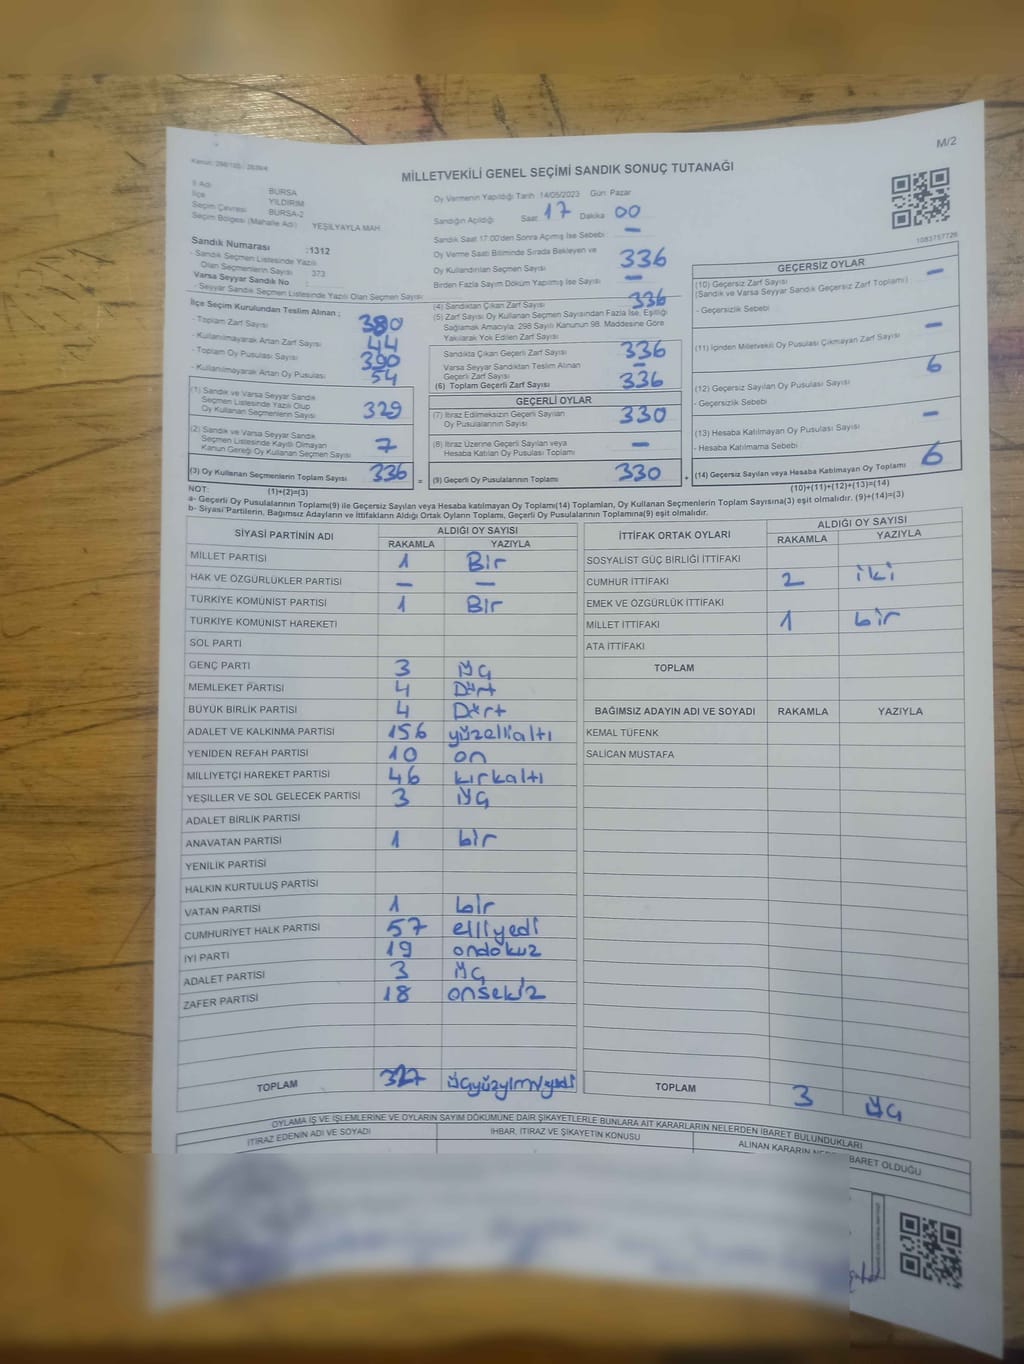 M/2
MİLLETVEKİLİ GENEL SEÇİMİ SANDIK SONUÇ TUTANAĞI
İl Adı BURSA
İlçe YILDIRIM
Seçim Çevresi BURSA-2
Seçim Bölgesi (Mahalle Adı) YEŞİLYAYLA MAH
Sandık Numarası :1312
- Sandık Seçmen Listesinde Yazılı
Olan Seçmenlerin Sayısı 373
Varsa Seyyar Sandık No :
- Seyyar Sandık Seçmen Listesinde Yazılı Olan Seçmen Sayısı
İlçe Seçim Kurulundan Teslim Alınan ;
- Toplam Zarf Sayısı 380
- Kullanılmayarak Artan Zarf Sayısı 44
- Toplam Oy Pusulası Sayısı 390
- Kullanılmayarak Artan Oy Pusulası 54
(1) Sandık ve Varsa Seyyar Sandık
Seçmen Listesinde Yazılı Olup
Oy Kullanan Seçmenlerin Sayısı 329
(2) Sandık ve Varsa Seyyar Sandık
Seçmen Listesinde Kayıtlı Olmayan
Kanun Gereği Oy Kullanan Seçmen Sayısı 7
(3) Oy Kullanan Seçmenlerin Toplam Sayısı 336
(1)+(2)=(3)
Oy Vermenin Yapıldığı Tarih :14/05/2023 Gün: Pazar
Sandığın Açıldığı Saat 17 Dakika 00
Sandık Saat 17:00'den Sonra Açılmış İse Sebebi : —
Oy Verme Saati Bitiminde Sırada Bekleyen ve
Oy Kullandırılan Seçmen Sayısı 336
Birden Fazla Sayım Döküm Yapılmış İse Sayısı —
(4) Sandıktan Çıkan Zarf Sayısı 336
(5) Zarf Sayısı Oy Kullanan Seçmen Sayısından Fazla İse, Eşitliği
Sağlamak Amacıyla; 298 Sayılı Kanunun 98. Maddesine Göre
Yakılarak Yok Edilen Zarf Sayısı
Sandıkta Çıkan Geçerli Zarf Sayısı 336
Varsa Seyyar Sandıktan Teslim Alınan
Geçerli Zarf Sayısı —
(6) Toplam Geçerli Zarf Sayısı 336
GEÇERLİ OYLAR
(7) İtiraz Edilmeksizin Geçerli Sayılan
Oy Pusulalarının Sayısı 330
(8) İtiraz Üzerine Geçerli Sayılan veya
Hesaba Katılan Oy Pusulası Toplamı —
= (9) Geçerli Oy Pusulalarının Toplamı 330
1083757726
GEÇERSİZ OYLAR
(10) Geçersiz Zarf Sayısı —
(Sandık ve Varsa Seyyar Sandık Geçersiz Zarf Toplamı)
- Geçersizlik Sebebi
(11) İçinden Milletvekili Oy Pusulası Çıkmayan Zarf Sayısı —
(12) Geçersiz Sayılan Oy Pusulası Sayısı 6
- Geçersizlik Sebebi
(13) Hesaba Katılmayan Oy Pusulası Sayısı —
- Hesaba Katılmama Sebebi
+ (14) Geçersiz Sayılan veya Hesaba Katılmayan Oy Toplamı 6
(10)+(11)+(12)+(13)=(14)
NOT:
a- Geçerli Oy Pusulalarının Toplamı(9) ile Geçersiz Sayılan veya Hesaba katılmayan Oy Toplamı(14) Toplamları, Oy Kullanan Seçmenlerin Toplam Sayısına(3) eşit olmalıdır. (9)+(14)=(3)
b- Siyasi Partilerin, Bağımsız Adayların ve İttifakların Aldığı Ortak Oyların Toplamı, Geçerli Oy Pusulalarının Toplamına(9) eşit olmalıdır.
SİYASİ PARTİNİN ADI ALDIĞI OY SAYISI
RAKAMLA YAZIYLA
MİLLET PARTİSİ 1 Bir
HAK VE ÖZGÜRLÜKLER PARTİSİ — —
TÜRKİYE KOMÜNİST PARTİSİ 1 Bir
TÜRKİYE KOMÜNİST HAREKETİ
SOL PARTİ
GENÇ PARTİ 3 üç
MEMLEKET PARTİSİ 4 Dört
BÜYÜK BİRLİK PARTİSİ 4 Dört
ADALET VE KALKINMA PARTİSİ 156 yüzellialtı
YENİDEN REFAH PARTİSİ 10 on
MİLLİYETÇİ HAREKET PARTİSİ 46 kırkaltı
YEŞİLLER VE SOL GELECEK PARTİSİ 3 üç
ADALET BİRLİK PARTİSİ
ANAVATAN PARTİSİ 1 bir
YENİLİK PARTİSİ
HALKIN KURTULUŞ PARTİSİ
VATAN PARTİSİ 1 bir
CUMHURİYET HALK PARTİSİ 57 elliyedi
İYİ PARTİ 19 ondokuz
ADALET PARTİSİ 3 üç
ZAFER PARTİSİ 18 onsekiz
TOPLAM 327 üçyüzyirmiyedi
İTTİFAK ORTAK OYLARI ALDIĞI OY SAYISI
RAKAMLA YAZIYLA
SOSYALİST GÜÇ BİRLİĞİ İTTİFAKI
CUMHUR İTTİFAKI 2 iki
EMEK VE ÖZGÜRLÜK İTTİFAKI
MİLLET İTTİFAKI 1 bir
ATA İTTİFAKI
TOPLAM
BAĞIMSIZ ADAYIN ADI VE SOYADI RAKAMLA YAZIYLA
KEMAL TÜFENK
SALİCAN MUSTAFA
TOPLAM 3 üç
OYLAMA İŞ VE İŞLEMLERİNE VE OYLARIN SAYIM DÖKÜMÜNE DAİR ŞİKAYETLERLE BUNLARA AİT KARARLARIN NELERDEN İBARET BULUNDUKLARI
İTİRAZ EDENİN ADI VE SOYADI
İHBAR, İTİRAZ VE ŞİKAYETİN KONUSU
ALINAN KARARIN İBARET OLDUĞU